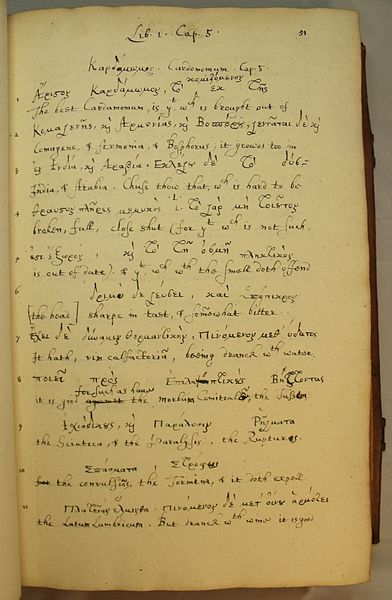 Lib. 1. Cap. 5.
51
Καρδάμωμος. Cardamomum. Cap. 5.
κομιζόμενος
1 Ἄριστος Καρδάμωμος, τὸ ἐκ τῆς
The best Cardamomum, is yt wch is brought out of
2 Κομαγενῆς, καὶ Ἀρμενίας, καὶ Βοσπόρου, γεννᾶται δὲ καὶ
Comagene, & Armenia, & Bosphorus, it growes too in
3 Ἰνδία, καὶ Ἀραβία. Ἐκλέγου δὲ τὸ δύσ-
India, & Arabia. Chuse thow that, wch is hard to be
4 θραυστον πλῆρες μεμυκὸς τὸ γὰρ μὴ τοιοῦτον
broken, full, close shut (for yt wch is not such,
5 ἐστι ἔξωρος, καὶ τὸ τῇ ὀσμῇ πληκτικὸς
is out of date) & yt wch wth the smell doth offend
6 δριμὺ δὲ γεύσει, καὶ
[the head] sharpe in tast, & somwhat bitter.
7 Ἔχει δὲ δύναμιν θερμαντικὴν, Πινόμενος μεθ' ὕδατος
It hath, vim calfactoriā, beeing dranck wth water.
8 ποιεῖ πρὸς Βήττοντας
for such as have
it is good against the morbum Comitialē, the Tussim
9 Ἰσχιαδικοὺς, καὶ Παραλυσιν Ῥήγματα
the Sciatica, & the Paralysis, the Ruptures.
10 Σπάσματα Στρόφους
the convulsiōs, the Tormina, & it doth expell
11 Πλατεῖαν ἕλμινθα. Πινόμενος δὲ μετ' οἴνου ἁρμόζει
the Latum Lumbricum. But dranck wth wine it is good